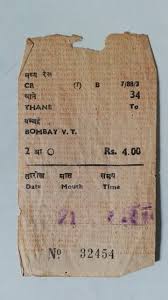 मध्य रेल
CR (7) B 7/88/3
थाने 34
THANE To
बम्बई
BOMBAY V. T.
2 आ ○ Rs. 4.00
तारीख मास समय
Date Month Time
21
No 32454